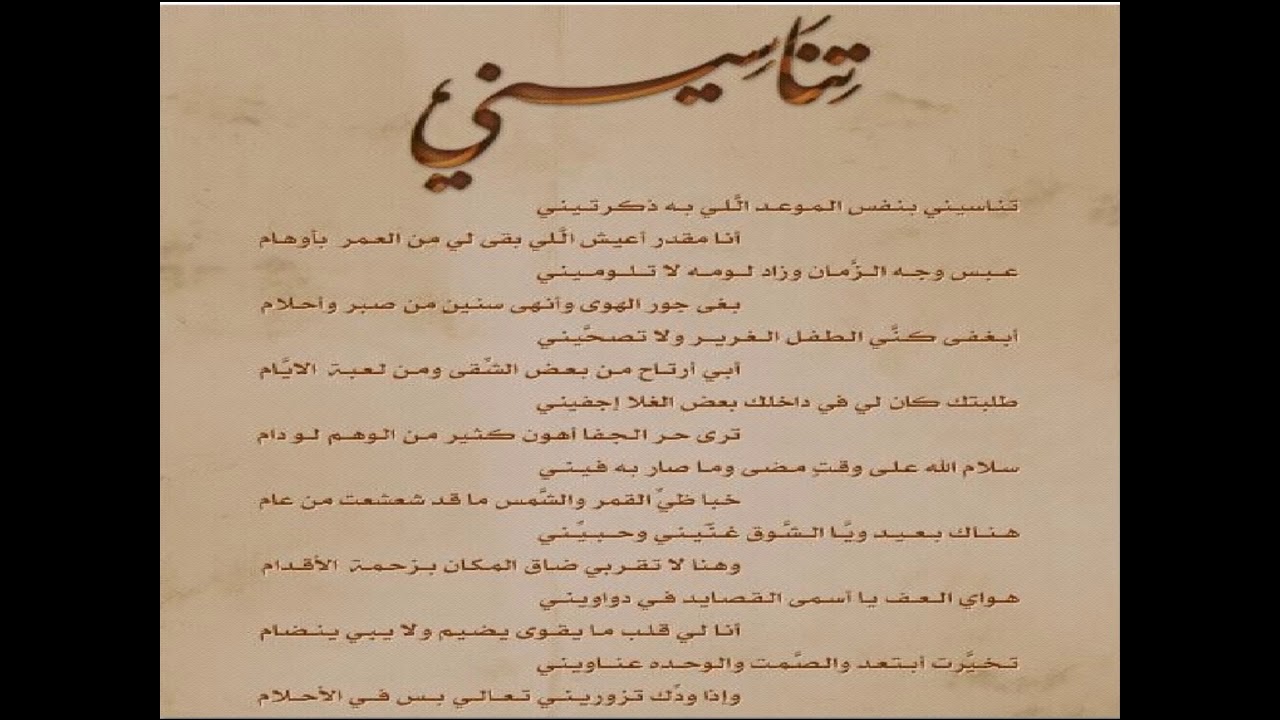 تِنَاسِيني
تَناسيني بنفس الموعد الَّلي به ذكرتيني
أنا مقدر أعيش الَّلي بقى لي من العمر بأوهام
عبس وجه الزَّمان وزاد لومه لا تلوميني
بغى جور الهوى وأنهى سنين من صبر وأحلام
أبغفى كنَّي الطفل الغرير ولا تصحَّيني
أبي أرتاح من بعض الشَّقى ومن لعبة الايَّام
طلبتك كان لي في داخلك بعض الغلا إجفيني
ترى حر الجفا أهون كثير من الوهم لو دام
سلام الله على وقتٍ مضى وما صار به فيني
خبا ظيّ القمر والشَّمس ما قد شعشعت من عام
هناك بعيد ويَّا الشَّوق غنَّيني وحبيِّني
وهنا لا تقربي ضاق المكان بزحمة الأقدام
هواي العف يا أسمى القصايد في دواويني
أنا لي قلب ما يقوى يضيم ولا يبي ينضام
تخيَّرت أبتعد والصَّمت والوحده عناويني
وإذا ودِّك تزوريني تعالي بس في الأحلام